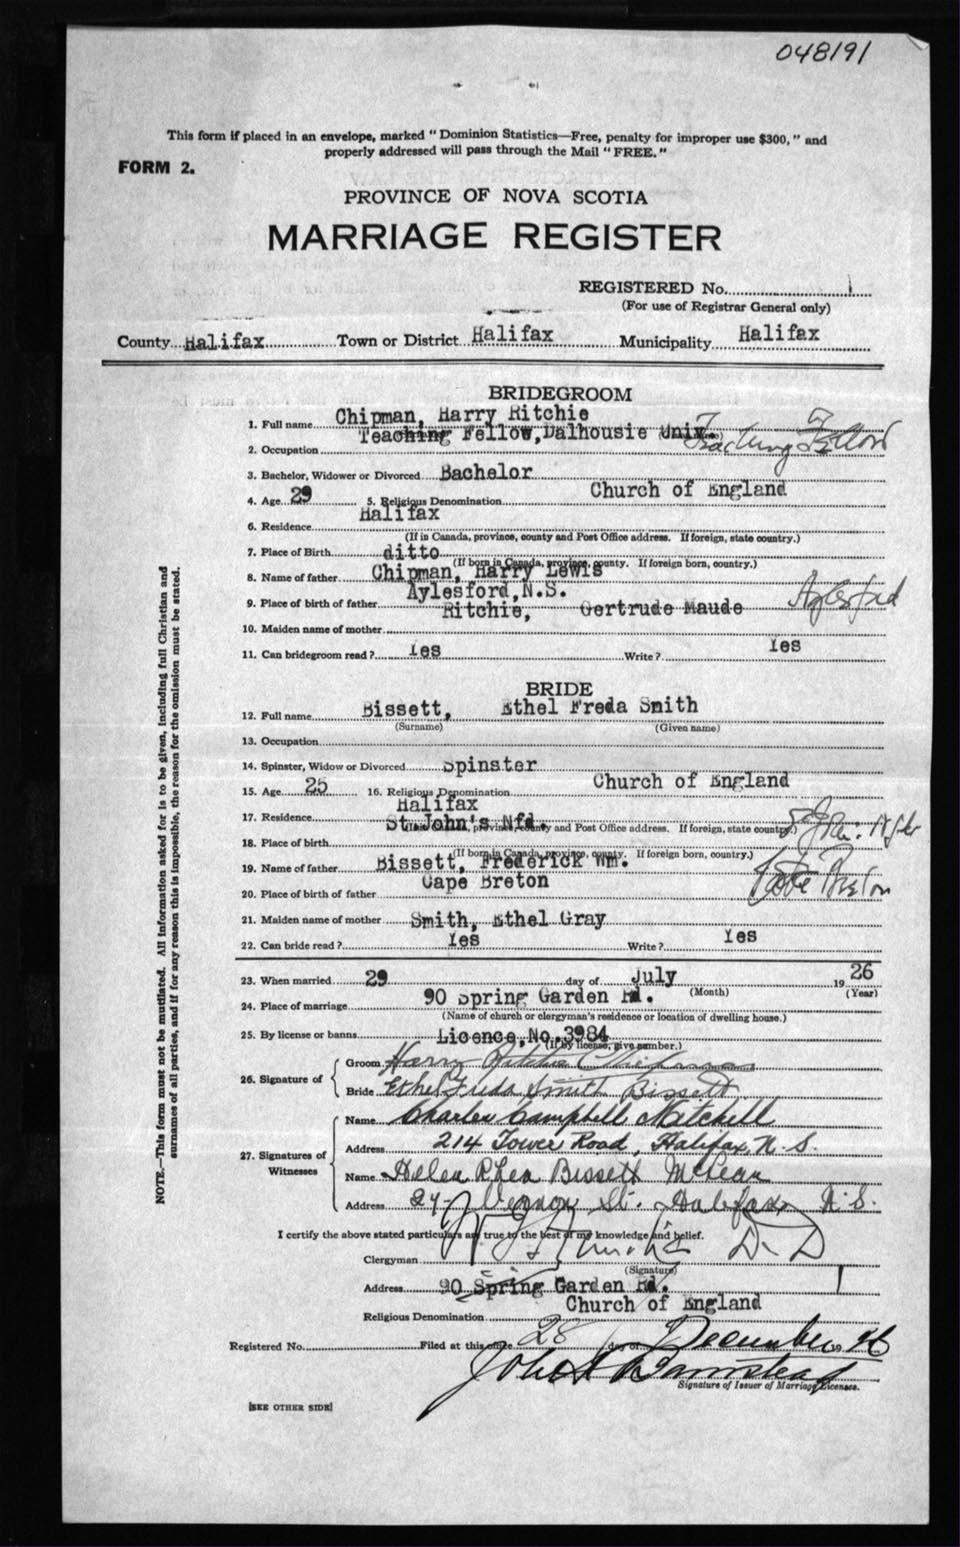 048191
This form if placed in an envelope, marked " Dominion Statistics—Free, penalty for improper use $300, " and
properly addressed will pass through the Mail " FREE."
FORM 2.
PROVINCE OF NOVA SCOTIA
MARRIAGE REGISTER
REGISTERED No.
(For use of Registrar General only)
County Halifax Town or District Halifax Municipality Halifax
BRIDEGROOM
1. Full name Chipman, Harry Ritchie
2. Occupation Teaching Fellow, Dalhousie Univ. Teaching Fellow
3. Bachelor, Widower or Divorced Bachelor
4. Age 29 5. Religious Denomination Church of England
6. Residence Halifax
(If in Canada, province, county and Post Office address. If foreign, state country.)
7. Place of Birth ditto
(If born in Canada, province, county. If foreign born, country.)
8. Name of father Chipman, Harry Lewis
9. Place of birth of father Aylesford, N.S. Aylesford
10. Maiden name of mother Ritchie, Gertrude Maude
11. Can bridegroom read ? Yes Write ? Yes
BRIDE
12. Full name Bissett, Ethel Freda Smith
(Surname) (Given name)
13. Occupation
14. Spinster, Widow or Divorced Spinster
15. Age 25 16. Religious Denomination Church of England
17. Residence Halifax
province, county and Post Office address. If foreign, state country.)
18. Place of birth St. John's Nfd.
(If born in Canada, province, county. If foreign born, country.)
19. Name of father Bissett, Frederick Wm.
20. Place of birth of father Cape Breton Cape Breton
21. Maiden name of mother Smith, Ethel Gray
22. Can bride read ? Yes Write ? Yes
23. When married 29 day of July 1926
(Month) (Year)
24. Place of marriage 90 Spring Garden Rd.
(Name of church or clergyman's residence or location of dwelling house.)
25. By license or banns Licence, No. 3984
(If by license, give number.)
26. Signature of Groom Harry Ritchie Chipman
Bride Ethel Freda Smith Bissett
27. Signatures of Witnesses
Name Charles Campbell Mitchell
Address 214 Tower Road, Halifax, N.S.
Name Helen Rhea Bissett McLean
Address 27 Vernon St. Halifax, N.S.
I certify the above stated particulars are true to the best of my knowledge and belief.
Clergyman D.D
(Signature)
Address 90 Spring Garden Rd.
Religious Denomination Church of England
Registered No. Filed at this office 28 day of December 1926
Signature of Issuer of Marriage Licenses.
[SEE OTHER SIDE]
NOTE.—This form must not be mutilated. All information asked for is to be given, including full Christian and
surnames of all parties, and if for any reason this is impossible, the reason for the omission must be stated.